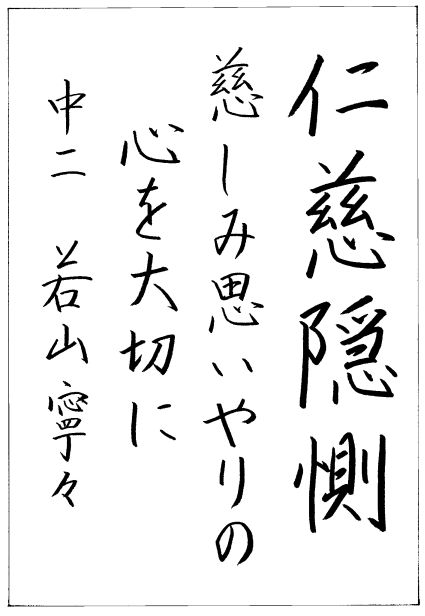 仁慈隠惻
慈しみ思いやりの
心を大切に
中二 若山寧々